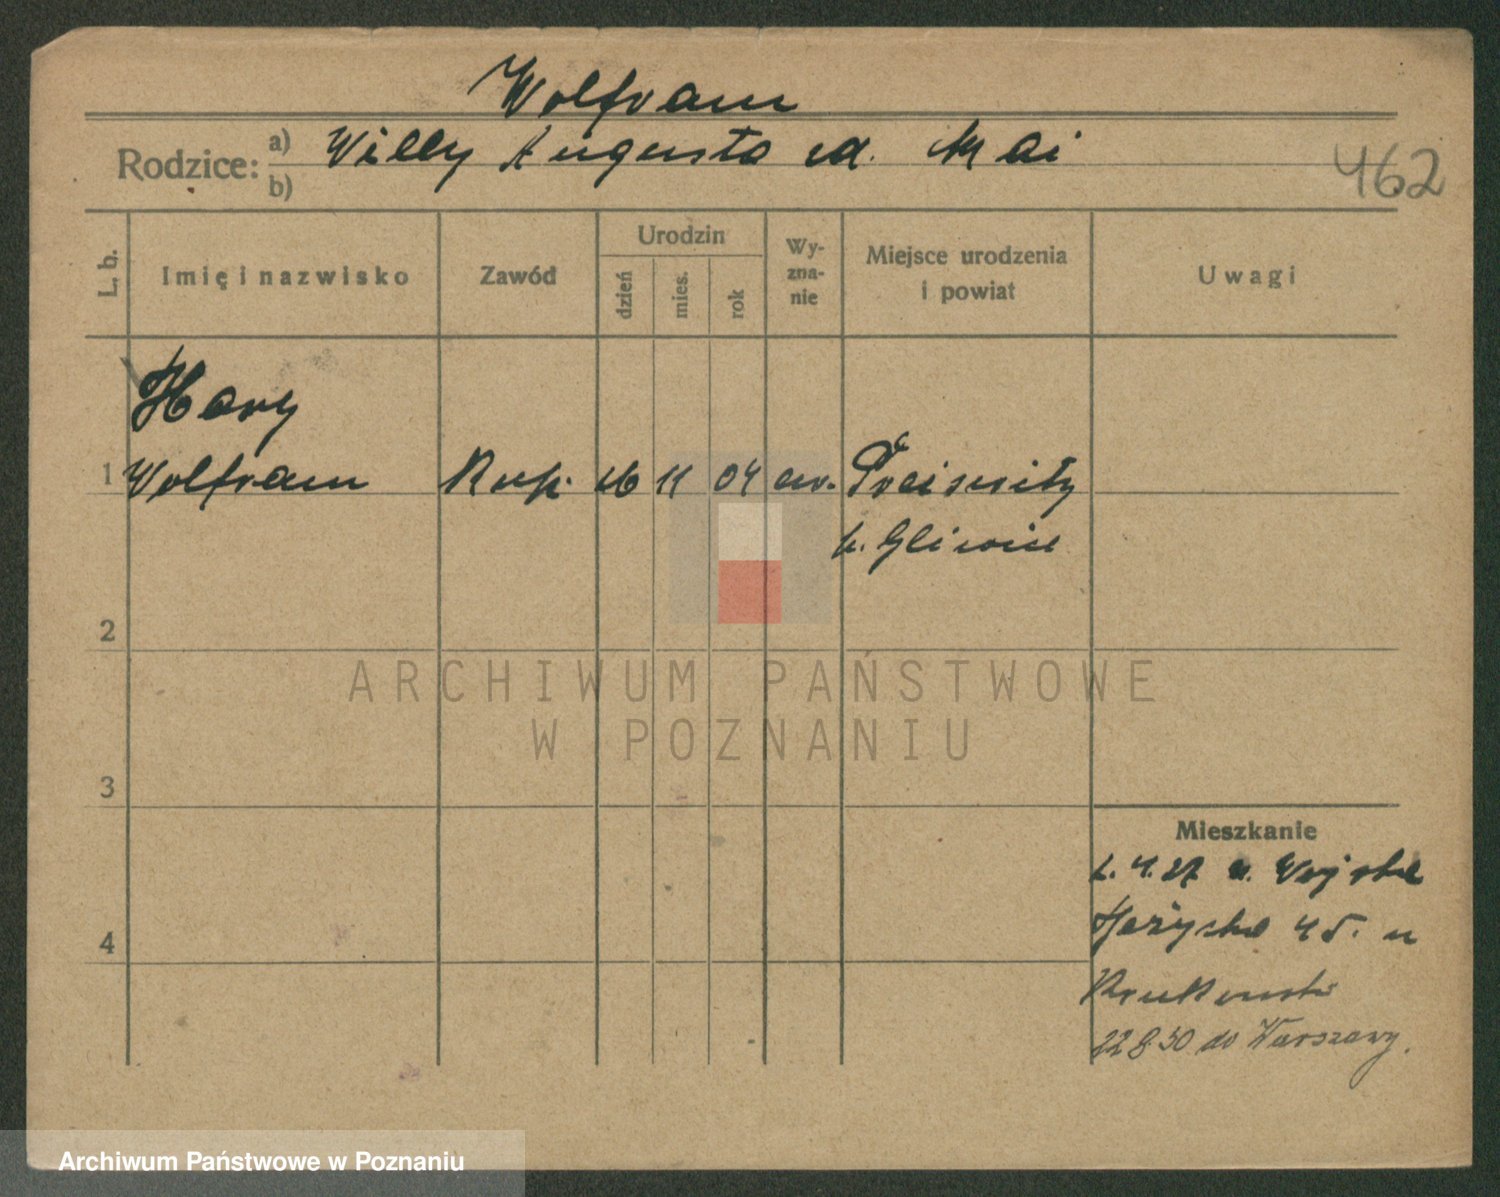 Wolfram
Rodzice: a) Willy Augusta rd. Mai
b)
462
L. b. Imię i nazwisko Zawód Urodzin dzień mies. rok Wy-zna-nie Miejsce urodzenia i powiat Uwagi
Hary
1 Wolfram Kup. 16 11 04 ew. Preiswitz
p. Gliwice
2
ARCHIWUM PAŃSTWOWE
W POZNANIU
3
Mieszkanie
4. 27
4
45. u
22 8 30 do Warszawy.
Archiwum Państwowe w Poznaniu